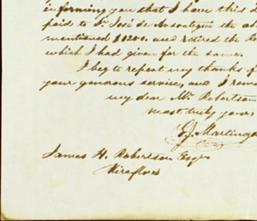 informing you that I have this
paid to Sr. José de Ansoategui the ab
mentioned $1200. and retired the Re
which I had given for the same.
I beg to repeat my thanks f
your generous service, and I rema
my dear Mr. Robertson
most truly yours
J. Martinez
James H. Robertson Esqr
Miraflores